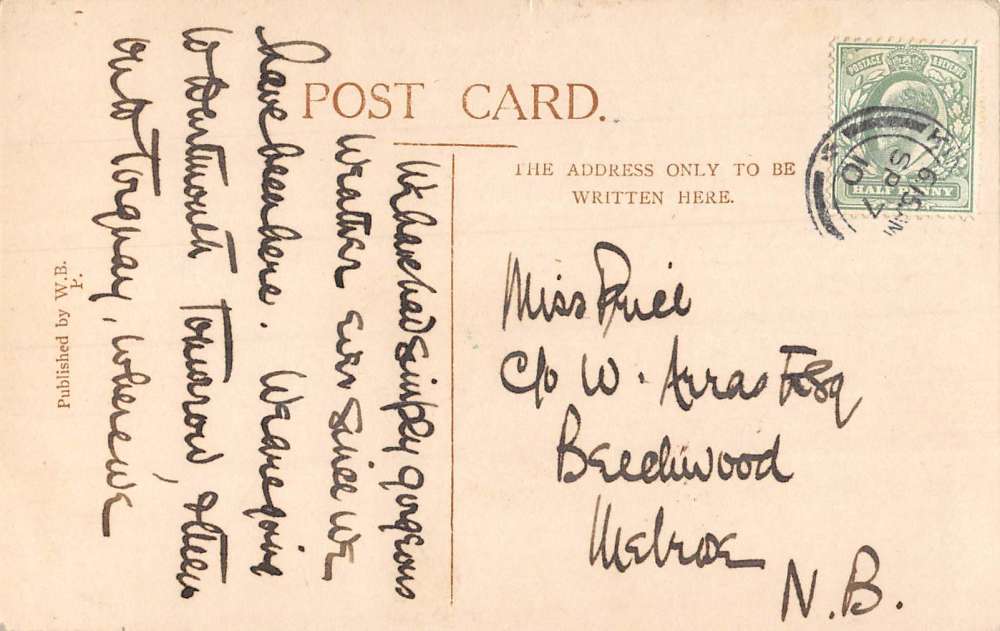 POST CARD.
THE ADDRESS ONLY TO BE
WRITTEN HERE.
We have had simply gorgeous
weather ever since we
have been here. We are going
to Dartmouth tomorrow & then
on to Torquay, where we
Miss Price
c/o W. Arras Esq
Beechwood
Melrose
N.B.
Published by W.B.
P.
POSTAGE & REVENUE
HALF PENNY
6 15 AM
SP 7
10